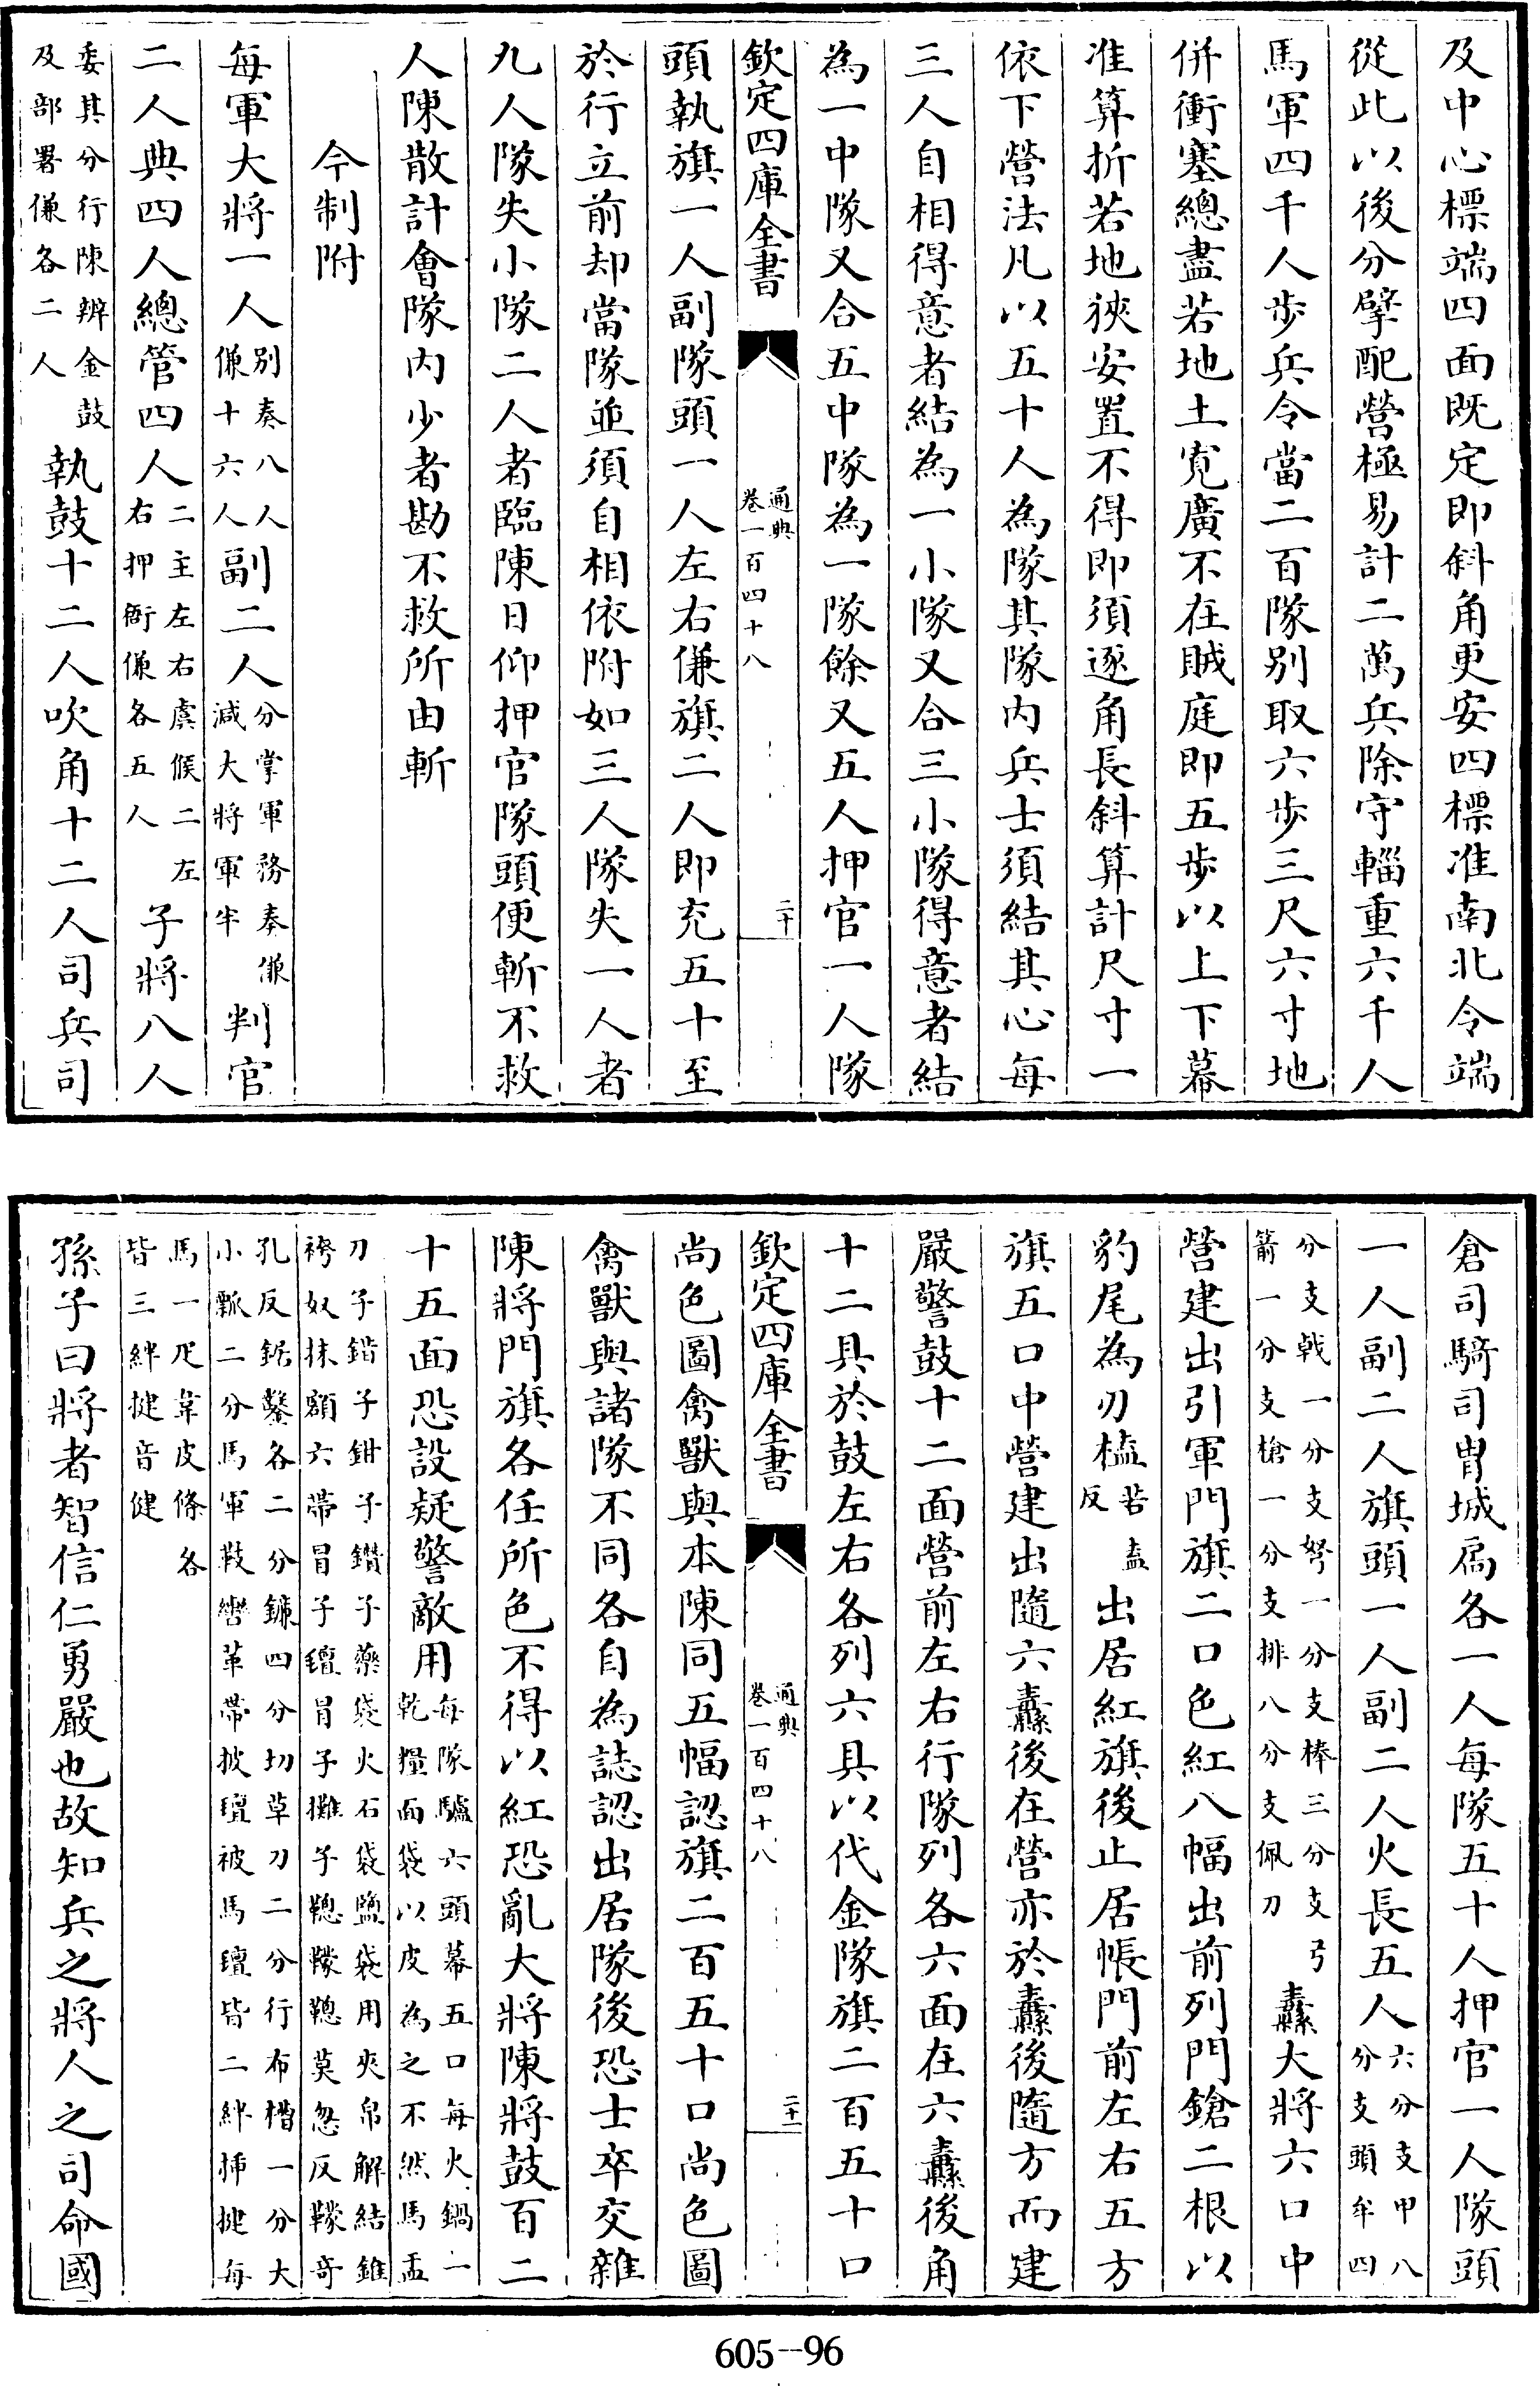 及中心標端四面既定即斜角更安四標准南北令端
從此以後分擘配營極易計二萬兵除守輜重六千人
馬軍四千人步兵令當二百隊别取六步三尺六寸地
併衝塞總盡若地土寛廣不在賊庭即五步以上下幕
准算折若地狹安置不得即須逐角長斜算計尺寸一
依下營法凡以五十人為隊其隊内兵士須結其心每
三人自相得意者結為一小隊又合三小隊得意者結
為一中隊又合五中隊為一隊餘又五人押官一人隊
欽定四庫全書 通典 卷一百四十八 二十
頭執旗一人副隊頭一人左右傔旗二人即充五十至
於行立前却當隊並須自相依附如三人隊失一人者
九人隊失小隊二人者臨陳日仰押官隊頭便斬不救
人陳散計會隊内少者勘不救所由斬
今制附
每軍大將一人别奏八人傔十六人副二人分掌軍務奏傔減大將軍半判官
二人典四人總管四人二主左右虞候二左右押衙傔各五人子將八人
委其分行陳辨金鼓及部署傔各二人執鼓十二人吹角十二人司兵司
倉司騎司胄城局各一人每隊五十人押官一人隊頭
一人副二人旗頭一人副二人火長五人六分支甲八分支頭牟四
分支戟一分支弩一分支棒三分支弓箭一分支槍一分支排八分支佩刀纛大將六口中
營建出引軍門旗二口色紅八幅出前列門鎗二根以
豹尾為刃榼苦盍反出居紅旗後止居帳門前左右五方
旗五口中營建出隨六纛後在營亦於纛後隨方而建
嚴警鼓十二面營前左右行隊列各六面在六纛後角
十二具於鼓左右各列六具以代金隊旗二百五十口
欽定四庫全書 通典 卷一百四十八 二十一
尚色圖禽獸與本陳同五幅認旗二百五十口尚色圖
禽獸與諸隊不同各自為誌認出居隊後恐士卒交雜
陳將門旗各任所色不得以紅恐亂大將陳將鼓百二
十五面恐設疑警敵用每隊驢六頭幕五口每火鍋一乾糧面袋以皮為之不然馬盂
刀子鍇子鉗子鑽子藥袋火石袋鹽袋用夾帛解結錐袴奴抹額六帶冒子氊冒子攤子𩍐𩎟𩍐莫忽反𩎟奇
孔反鋸鑿各二分鎌四分切草刀二分行布槽一分大小瓢二分馬軍鞍轡革帶披氊被馬氊皆二絆插揵每
馬一疋韋皮條各皆三絆揵音健
孫子曰將者智信仁勇嚴也故知兵之將人之司命國
605--96